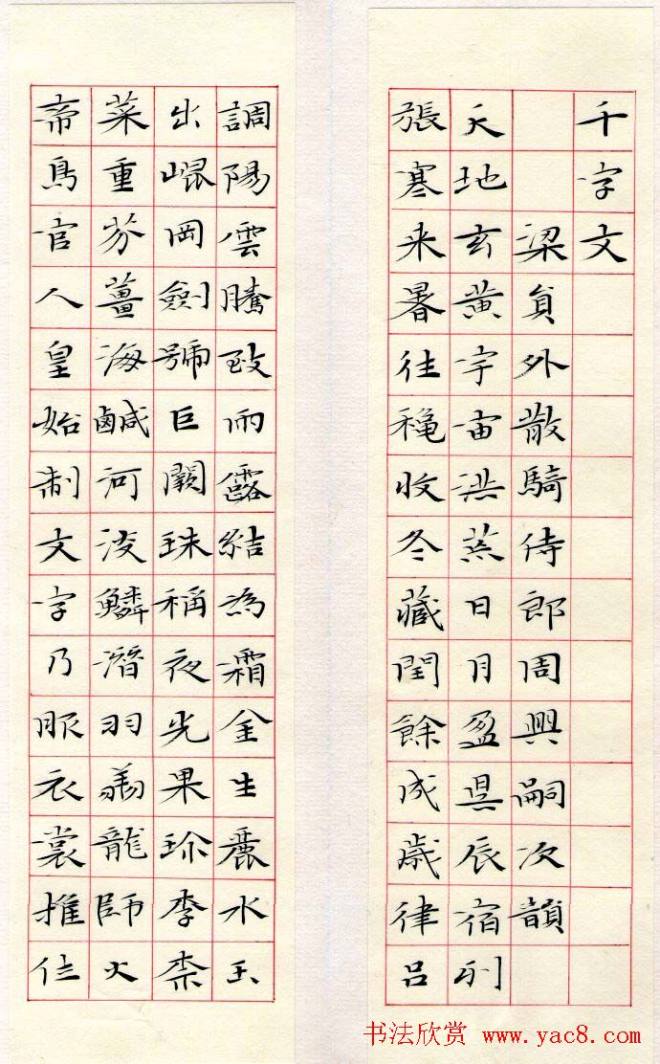 千字文
梁貟外散騎侍郎周興嗣次韻
天地玄黃宇宙洪荒日月盈昃辰宿列
張寒来暑往穐收冬藏閏餘成歲律呂
調陽雲騰致雨露結為霜金生麗水玉
出崐岡劍號巨闕珠稱夜光果珎李柰
菜重芥薑海鹹河淡鱗潛羽翔龍師火
帝鳥官人皇始制文字乃服衣裳推位
书法欣赏 www.yac8.com